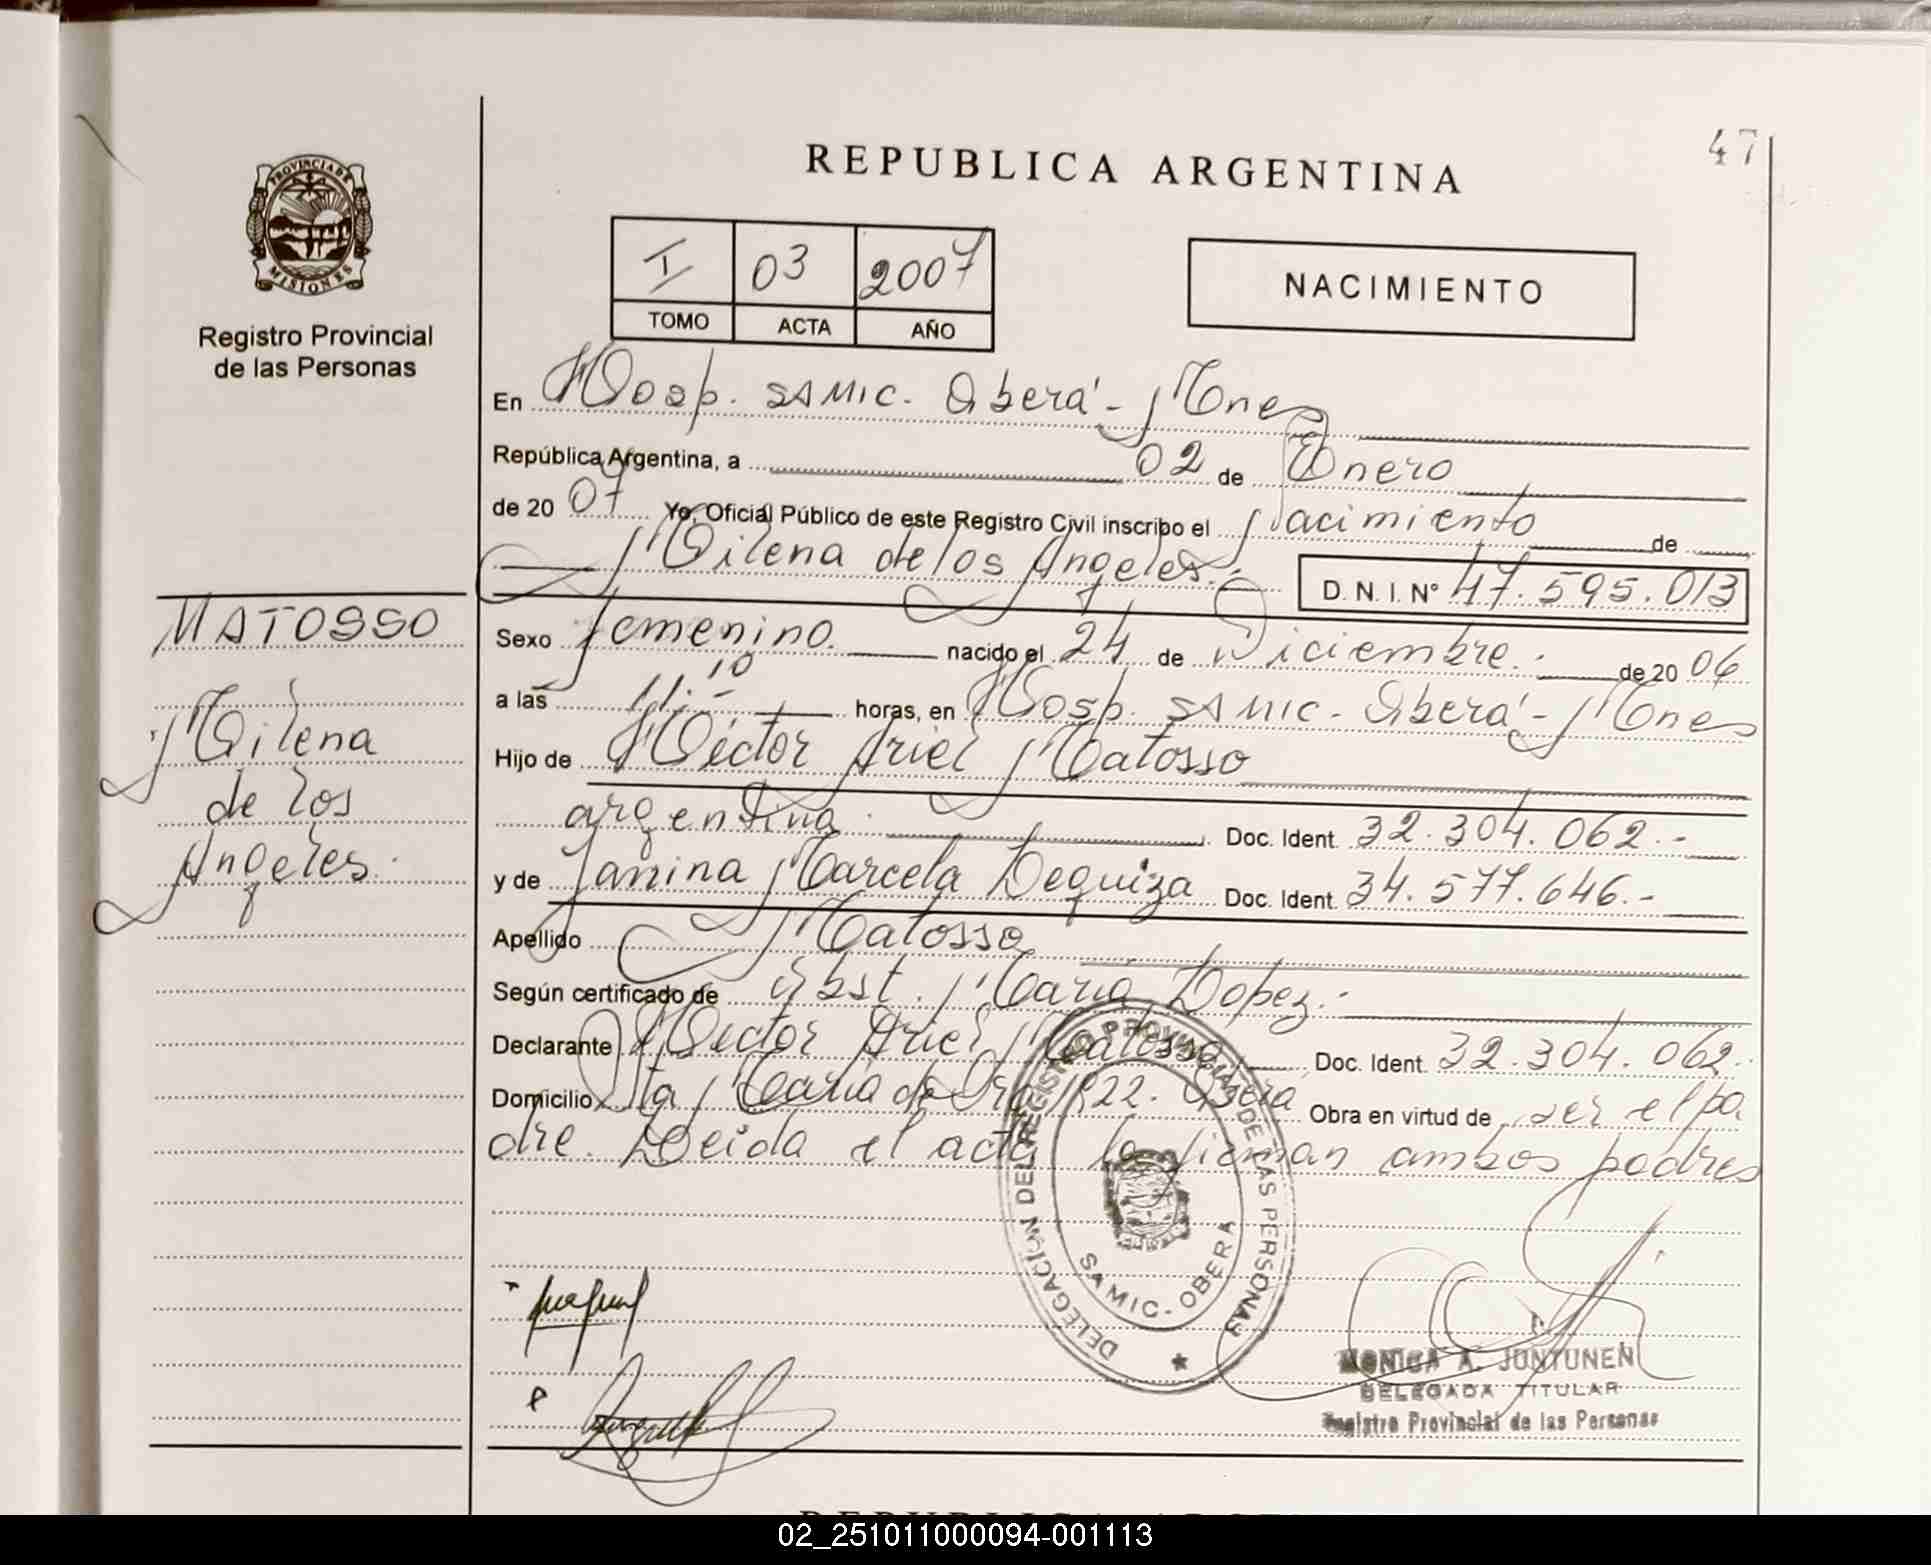 47
REPUBLICA ARGENTINA
PROVINCIA DE MISIONES
Registro Provincial
de las Personas
I 03 2007
TOMO ACTA AÑO
NACIMIENTO
En Hosp. SAMIC. Oberá - Mnes
República Argentina, a 02 de Enero
de 20 07 Yo, Oficial Público de este Registro Civil inscribo el Nacimiento de
Milena de los Angeles.
D.N.I. Nº 47.595.013
MATOSSO
Milena
de los
Angeles.
Sexo femenino. nacido el 24 de Diciembre. de 20 06
a las 11:10 horas, en Hosp. SAMIC - Oberá - Mnes
Hijo de Héctor Ariel Matosso
argentina. Doc. Ident. 32.304.062.-
y de Janina Marcela Dequiza Doc. Ident. 34.577.646.-
Apellido Matosso
Según certificado de Obst. María Lopez.-
Declarante Héctor Ariel Matosso Doc. Ident. 32.304.062.
Domicilio Sta María de 1822. Oberá Obra en virtud de ser el pa
dre. Leida el acta la firman ambos padres
DELEGACIÓN DEL REGISTRO PROVINCIAL DE LAS PERSONAS
SAMIC - OBERA
MONICA A. JUNTUNEN
DELEGADA TITULAR
Registro Provincial de las Personas
02_251011000094-001113